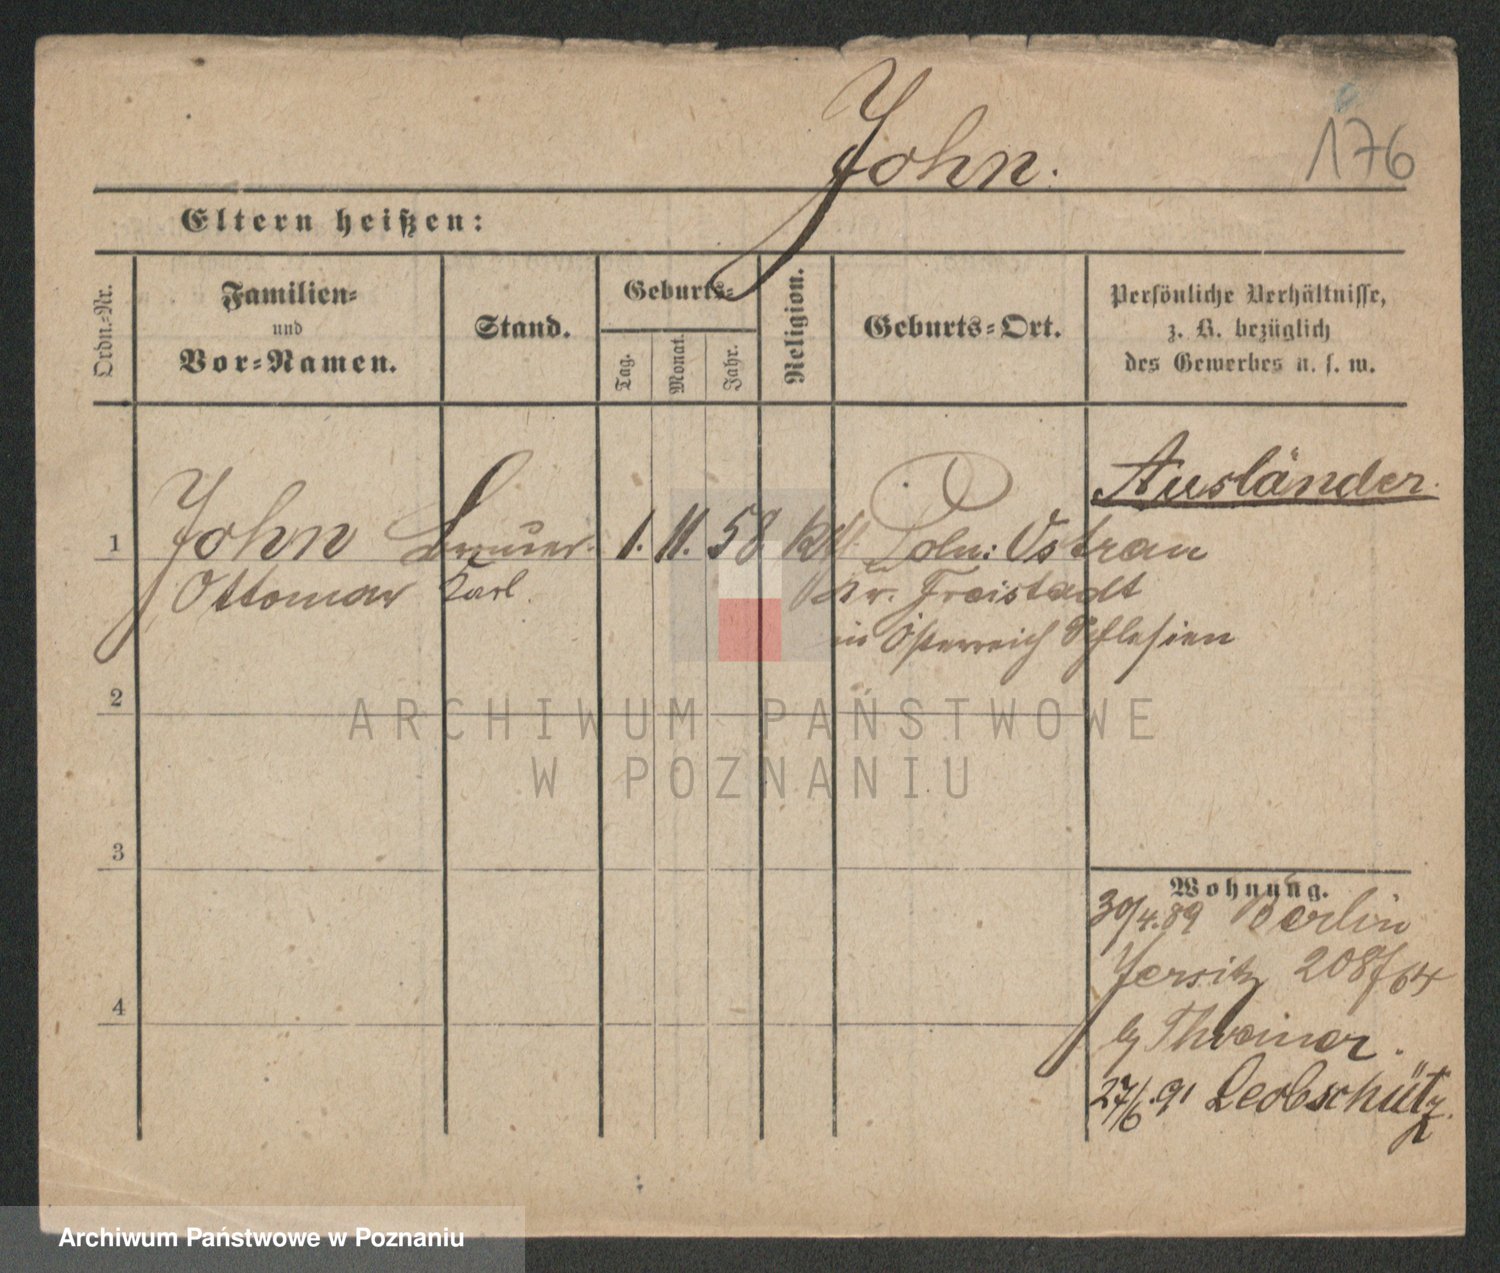 John.
176
Eltern heißen:
Ordn.-Nr.
Familien-
und
Vor-Namen.
Stand.
Geburts-
Tag.
Monat.
Jahr.
Religion.
Geburts-Ort.
Persönliche Verhältnisse,
z. B. bezüglich
des Gewerbes u. s. w.
Ausländer.
1 John Brauer. 1. 11. 58 kth. Poln: Ostrau
Ottomar Karl Kr. Freistadt
in Österreich Schlesien
2
ARCHIWUM PAŃSTWOWE
W POZNANIU
3
Wohnung.
30/4.89 Berlin
4
Jersitz 208/64
b/
27/6.91 Leobschütz.
Archiwum Państwowe w Poznaniu